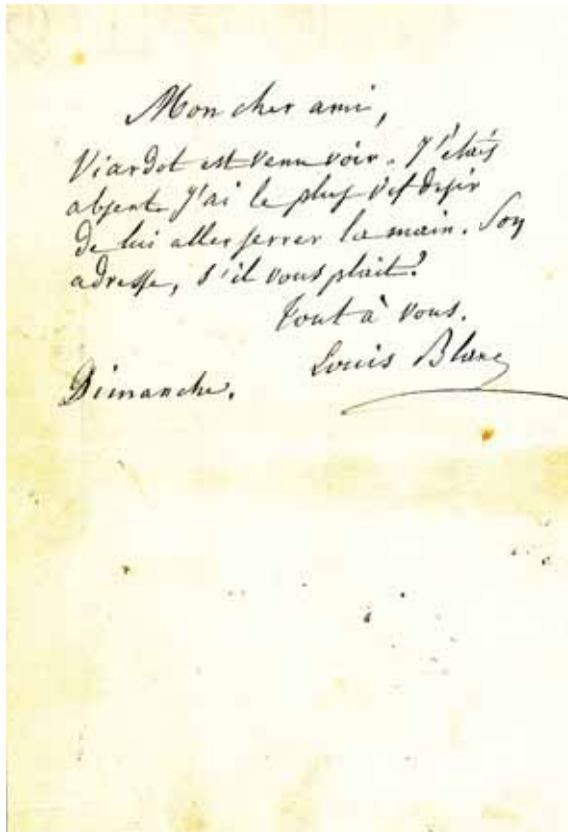 Mon cher ami,
Viardot est venu voir. J'étais
absent. J'ai le plus vif désir
de lui aller serrer la main. Son
adresse, s'il vous plait?
Tout à vous.
Louis Blanc
Dimanche.